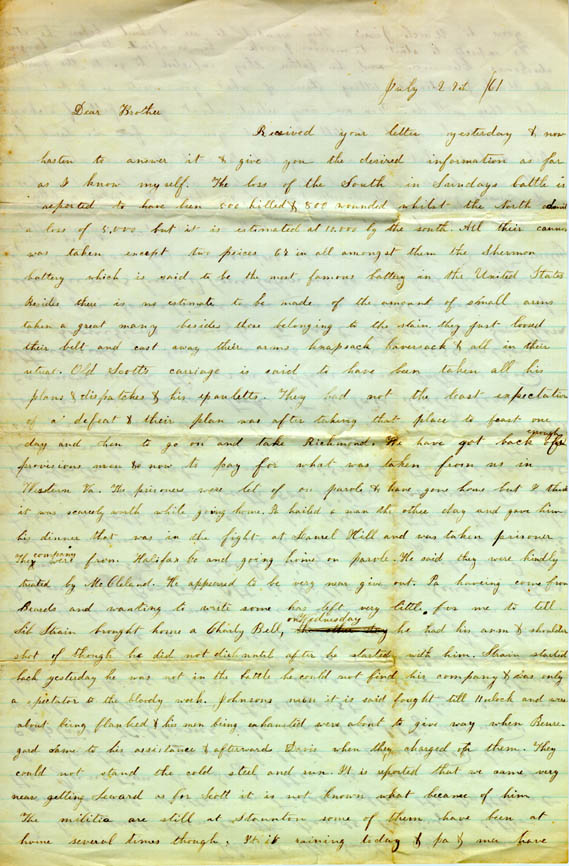 July 27th /61
Dear Brother
Received your letter yesterday & now
hasten to answer it & give you the desired information as far
as I know myself. The loss of the South in Sundays battle is
reported to have ben 500 killed & 800 wounded whilst the North admit
a loss of 5,000 but it is estimated at 10,000 by the south. All their cannon
was taken except two peices 62 in all amongst them the Shermon
battery which is said to be the most famous battery in the United States
Besides there is no estimate to be made of the amount of small arms
taken a great many besides those belonging to the slain they just loosed
their belt and cast away their arms knapsack haversack & all in their
retreat. Old Scotts carriage is said to have been taken all his
plans & dispatches & his epauletts. They had not the least expectation
of a defeat & their plan was after taking that place to feast one
day and then to go on and take Richmond. We have got back enough of
provisions men & now to pay for what was taken from us in
Western Va. The prisoners were let of on parole & have gone home but I think
it was scarcely worth while going home. Pa hailed a man the other day and gave him
his dinner that was in the fight at Laurel Hill and was taken prisoner
They company were from Halifax co and going home on parole. He said they were kindly
treated by McCleland. He appeared to be very near give out. Pa having come from
and wanting to write some has left very little for me to tell
Sib Strain brought home a Charly Bell, on Wednesday he had his arm & shoulder
shot of though he did not die until after he started with him. Strain started
back yesterday he was not in the battle he could not find his company & was only
a spectator to the bloody work. Johnsons men it is said fought till 11 olock and were
about being flanked & his men being exhausted were about to give way when Beaure-
gard came to his assistance & afterward Davis when they charged of them. They
could not stand the cold steel and run. It is reported that we came very
near getting Seward as for Scott it is not known what became of him
The militia are still at Staunton some of them have been at
home several times though. It is raining today & pa & me have